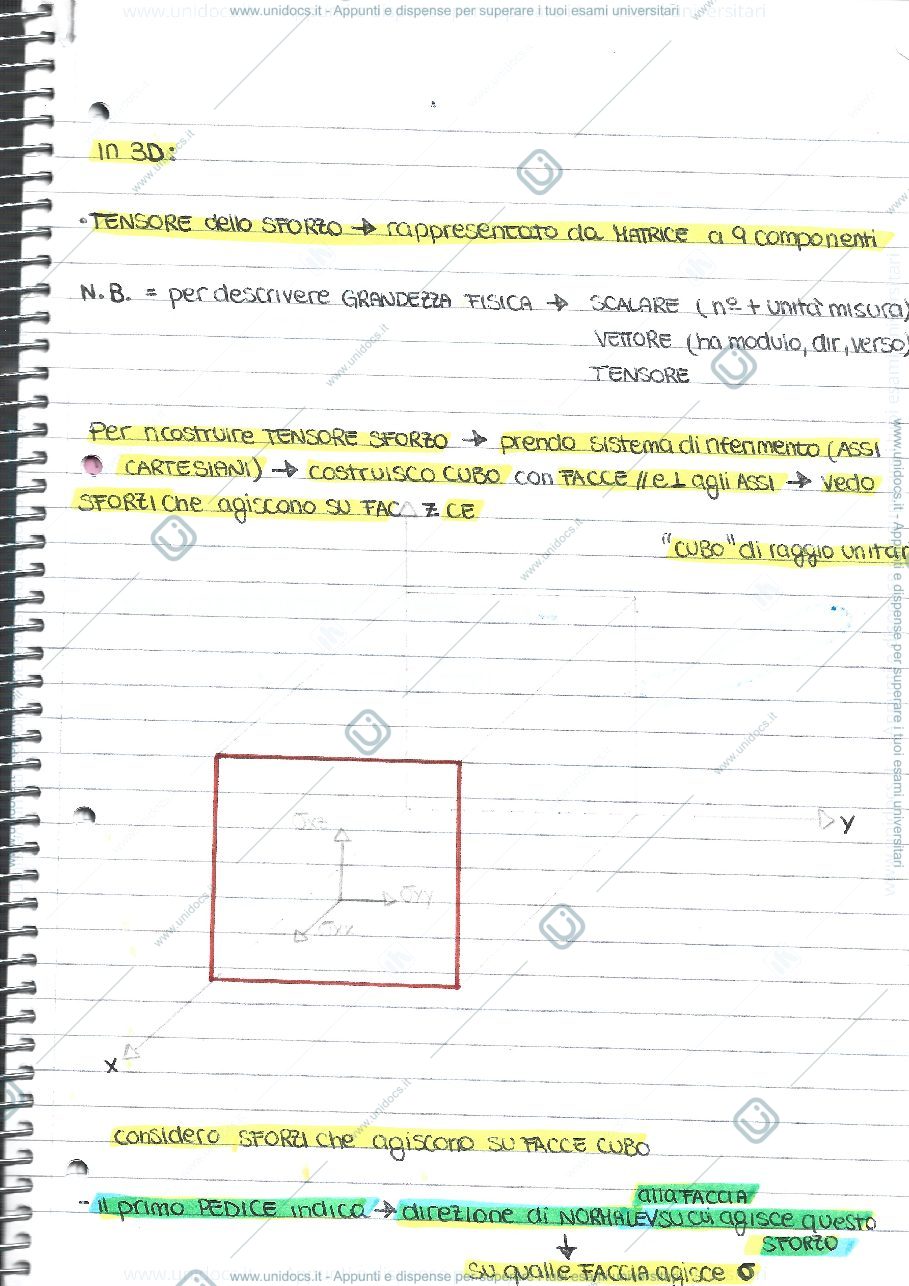 www.unidocs.it - Appunti e dispense per superare i tuoi esami universitari
In 3D:
• TENSORE dello SFORZO → rappresentato da MATRICE a 9 componenti
N.B. = per descrivere GRANDEZZA FISICA → SCALARE (n° + unità misura)
VETTORE (ha modulo, dir, verso)
TENSORE
Per ricostruire TENSORE SFORZO → prendo sistema di riferimento (ASSI
CARTESIANI) → costruisco CUBO con FACCE // e ⊥ agli ASSI → vedo
SFORZI che agiscono su FAC Z CE
"CUBO" di raggio unitar
y
x
considero SFORZI che agiscono su FACCE CUBO
alla FACCIA
- il primo PEDICE indica → direzione di NORMALE √ su cui agisce questo
SFORZO
↓
su quale FACCIA agisce σ
www.unidocs.it - Appunti e dispense per superare i tuoi esami universitari
www.unidocs.it - Appunti e dispense per superare i tuoi esami universitari